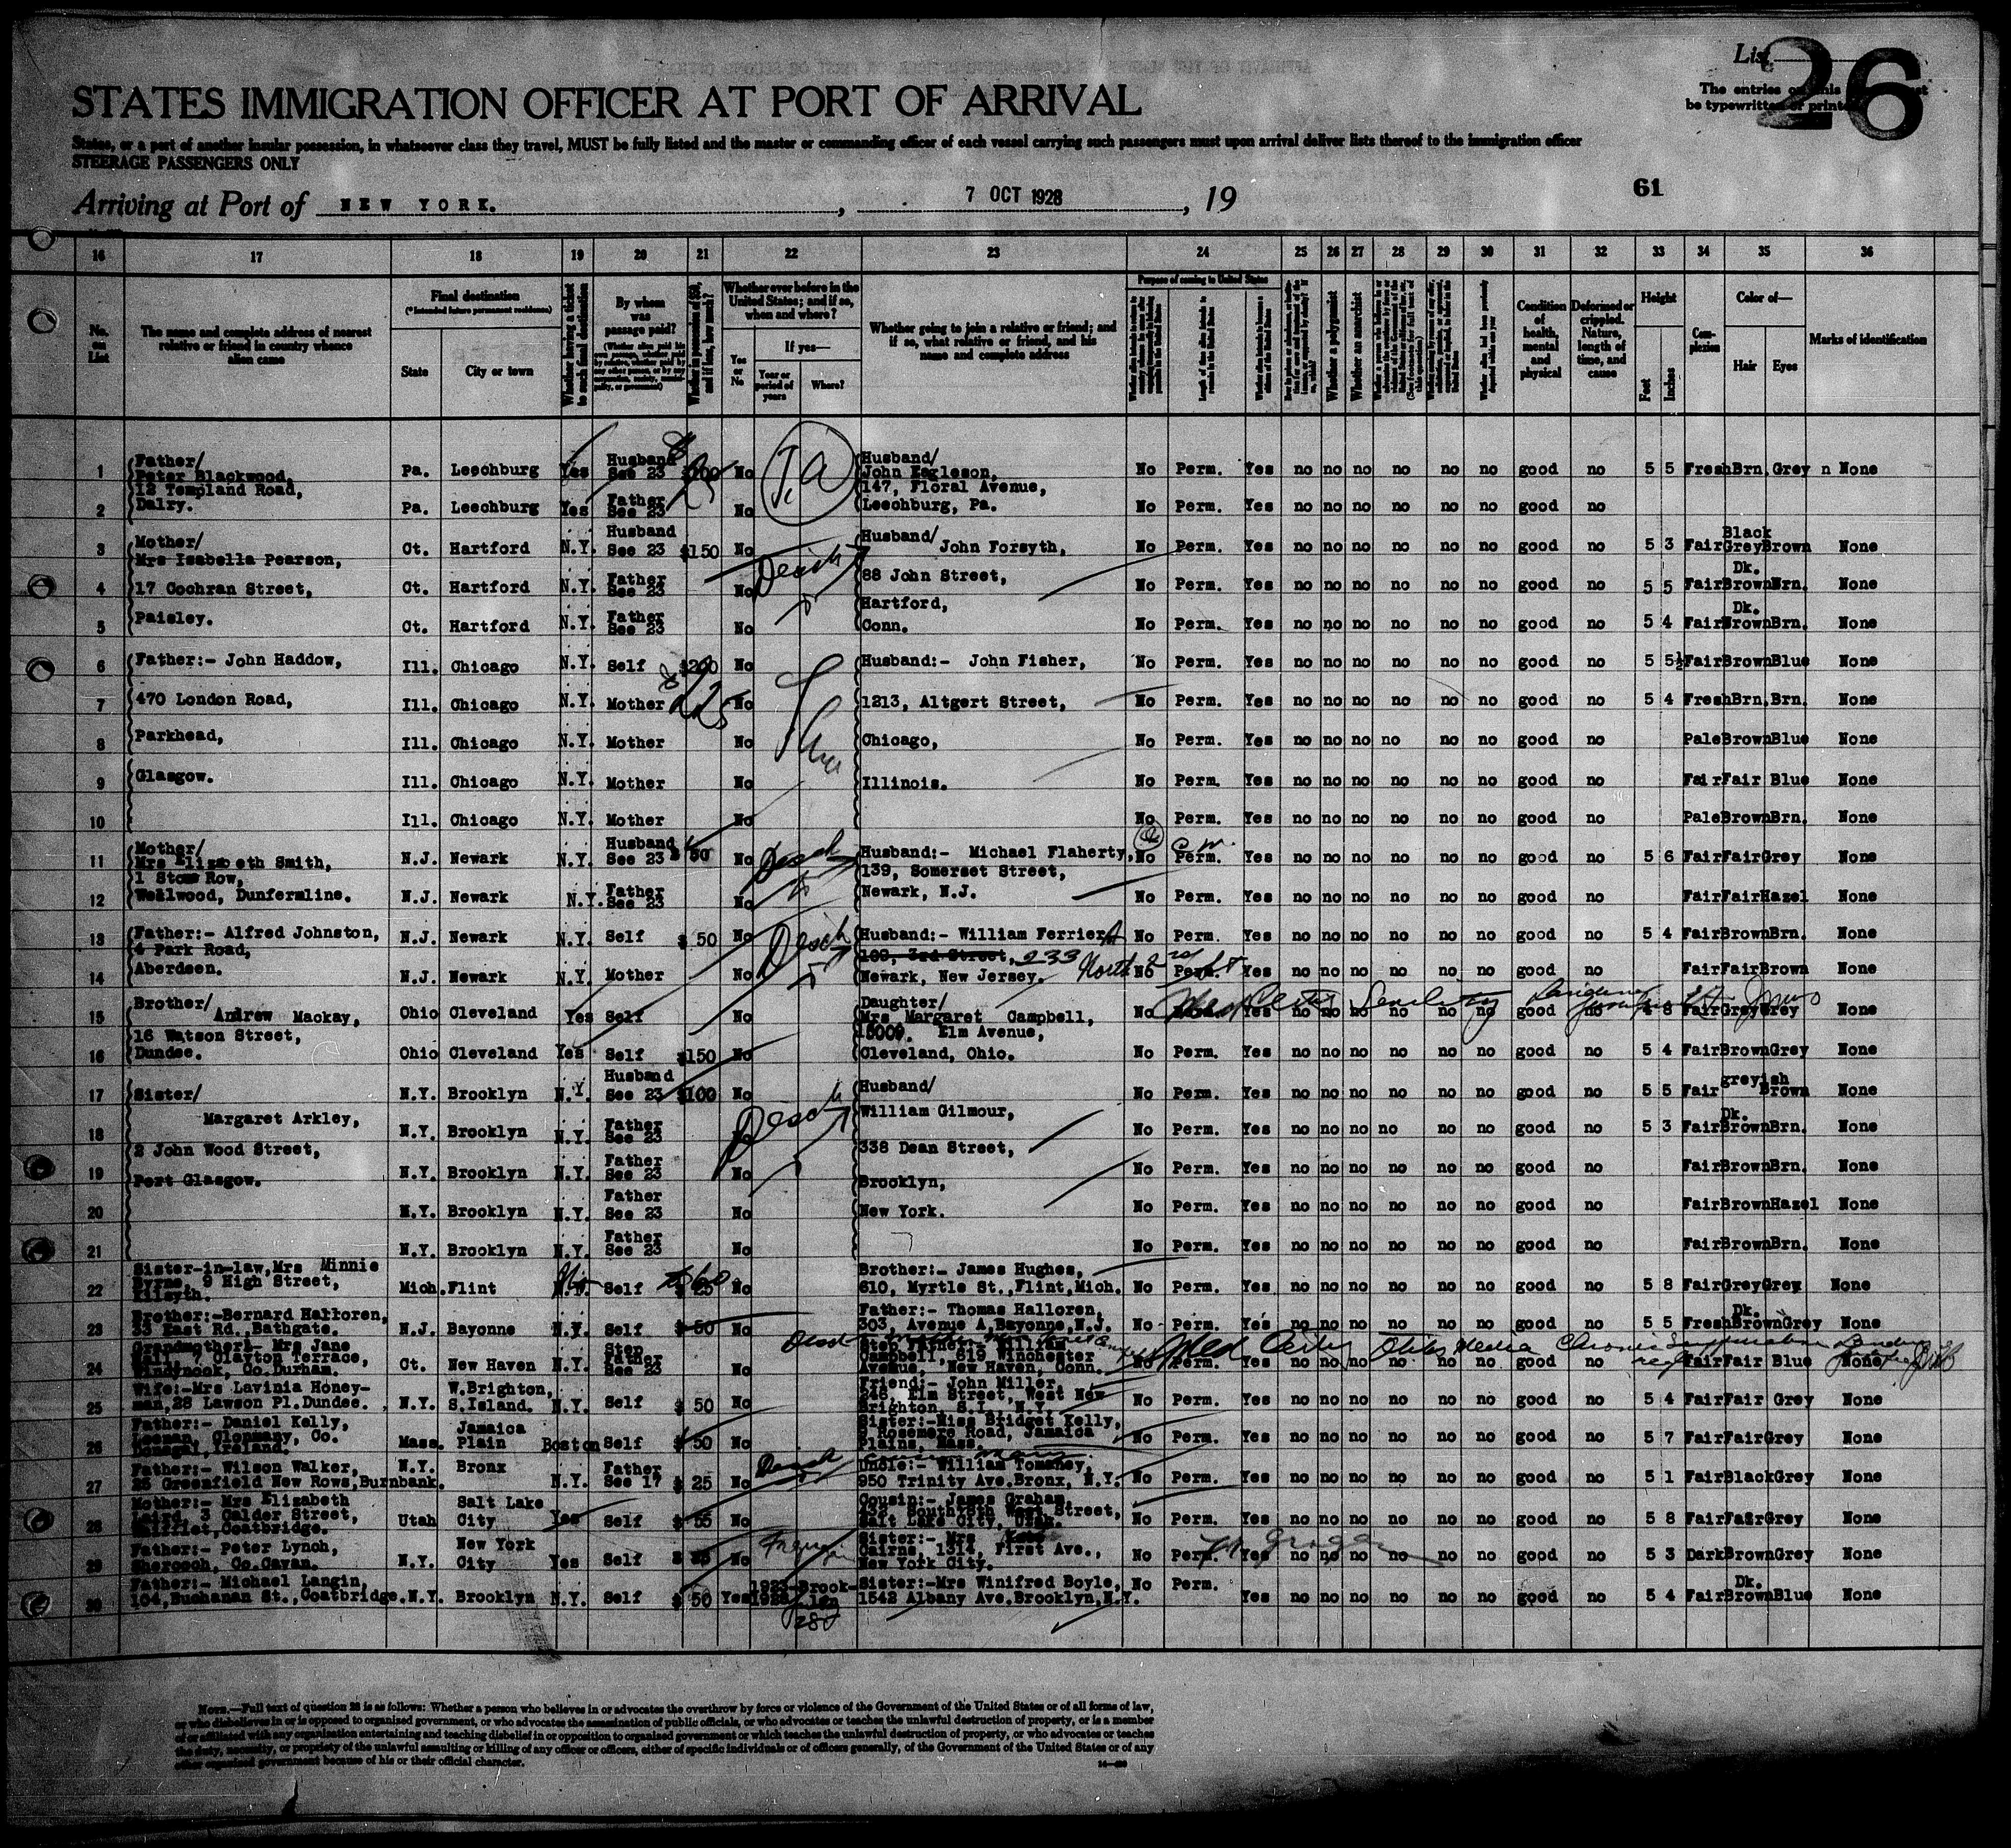 List
26
The entries on this
be typewritten or printed
STATES IMMIGRATION OFFICER AT PORT OF ARRIVAL
States, or a port of another insular possession, in whatsoever class they travel, MUST be fully listed and the master or commanding officer of each vessel carrying such passengers must upon arrival deliver lists thereof to the immigration officer
STEERAGE PASSENGERS ONLY
61
Arriving at Port of NEW YORK. , 7 OCT 1928 , 19
16 17 18 19 20 21 22 23 24 25 26 27 28 29 30 31 32 33 34 35 36
No. on List
The name and complete address of nearest relative or friend in country whence alien came
Final destination
(*Intended future permanent residence)
State
City or town
Whether having a ticket to such final destination
By whom was passage paid?
Whether in possession of $50, and if less, how much?
Whether ever before in the United States; and if so, when and where?
Yes or No
If yes—
Year or period of years
Where?
Whether going to join a relative or friend; and if so, what relative or friend, and his name and complete address
Purpose of coming to United States
Whether a polygamist
Whether an anarchist
Condition of health, mental and physical
Deformed or crippled. Nature, length of time, and cause
Height
Feet
Inches
Complexion
Color of—
Hair
Eyes
Marks of identification
1 Father/ Peter Blackwood, Pa. Leechburg Yes Husband See 23 $100 No Husband/ John Eagleson, No Perm. Yes no no no no no no good no 5 5 Fresh Brn. Grey n None
12 Templand Road, 147, Floral Avenue,
2 Dalry. Pa. Leechburg Yes Father See 23 No Leechburg, Pa. No Perm. Yes no no no no no no good no
3 Mother/ Mrs Isabella Pearson, Ct. Hartford N.Y. Husband See 23 $150 No Husband/ John Forsyth, No Perm. Yes no no no no no no good no 5 3 Fair Black Grey Brown None
4 17 Cochran Street, Ct. Hartford N.Y. Father See 23 No 88 John Street, No Perm. Yes no no no no no no good no 5 5 Fair Dk. Brown Brn. None
Hartford,
5 Paisley. Ct. Hartford N.Y. Father See 23 No Conn. No Perm. Yes no no no no no no good no 5 4 Fair Dk. Brown Brn. None
6 Father:- John Haddow, Ill. Chicago N.Y. Self $200 No Husband:- John Fisher, No Perm. Yes no no no no no no good no 5 5½ Fair Brown Blue None
7 470 London Road, Ill. Chicago N.Y. Mother No 1213, Altgert Street, No Perm. Yes no no no no no no good no 5 4 Fresh Brn. Brn. None
8 Parkhead, Ill. Chicago N.Y. Mother No Chicago, No Perm. Yes no no no no no no good no Pale Brown Blue None
9 Glasgow. Ill. Chicago N.Y. Mother No Illinois. No Perm. Yes no no no no no no good no Fair Fair Blue None
10 Ill. Chicago N.Y. Mother No No Perm. Yes no no no no no no good no Pale Brown Brn. None
11 Mother/ Mrs Elizabeth Smith, N.J. Newark N.Y. Husband See 23 $ 50 No Husband:- Michael Flaherty, No Perm. Yes no no no no no no good no 5 6 Fair Fair Grey None
1 Stone Row, 139, Somerset Street,
12 Wellwood, Dunfermline. N.J. Newark N.Y. Father See 23 No Newark, N.J. No Perm. Yes no no no no no no good no Fair Fair Hazel None
13 Father:- Alfred Johnston, N.J. Newark N.Y. Self $ 50 No Husband:- William Ferrier No Perm. Yes no no no no no no good no 5 4 Fair Brown Brn. None
4 Park Road, 109, 3rd Street, 233 North 2nd St
14 Aberdeen. N.J. Newark N.Y. Mother No Newark, New Jersey. No Perm. Yes no no no no no no good no Fair Fair Brown None
15 Brother/ Andrew Mackay, Ohio Cleveland Yes Self No Daughter/ Mrs Margaret Campbell, No Med Cert Senility Yes no no no no no no good no 4 8 Fair Grey Grey None
16 Watson Street, 15009. Elm Avenue,
16 Dundee. Ohio Cleveland Yes Self $150 No Cleveland, Ohio. No Perm. Yes no no no no no no good no 5 4 Fair Brown Grey None
17 Sister/ N.Y. Brooklyn N.Y. Husband See 23 $100 No Husband/ No Perm. Yes no no no no no no good no 5 5 Fair greyish Brown None
Margaret Arkley, William Gilmour,
18 N.Y. Brooklyn N.Y. Father See 23 No Perm. Yes no no no no no no good no 5 3 Fair Dk. Brown Brn. None
2 John Wood Street, 338 Dean Street,
19 Port Glasgow. N.Y. Brooklyn N.Y. Father See 23 No Brooklyn, No Perm. Yes no no no no no no good no Fair Brown Brn. None
20 N.Y. Brooklyn N.Y. Father See 23 No New York. No Perm. Yes no no no no no no good no Fair Brown Hazel None
21 N.Y. Brooklyn N.Y. Father See 23 No No Perm. Yes no no no no no no good no Fair Brown Brn. None
22 Sister-in-law, Mrs Minnie Byrne, 9 High Street, Kilsyth. Mich. Flint N.Y. Self $ 25 $60 No Brother:- James Hughes, 610, Myrtle St., Flint, Mich. No Perm. Yes no no no no no no good no 5 8 Fair Grey Grey None
23 Brother:-Bernard Halloren, 33 East Rd., Bathgate. N.J. Bayonne N.Y. Self $ 50 No Father:- Thomas Halloren, 303, Avenue A, Bayonne, N.J. No Perm. Yes no no no no no no good no 5 5 Fresh Dk. Brown Grey None
24 Grandmother:- Mrs Jane Hall, 7 Clayton Terrace, Windynook, Co. Durham. Ct. New Haven N.Y. Step Father See 23 No Step Father: William Campbell, 615 Winchester Avenue, New Haven, Conn. No Perm. Med Cert Otitis Media Chronic Suppurative Yes no no no no no no good no Fair Fair Blue None
25 Wife:-Mrs Lavinia Honeyman, 28 Lawson Pl. Dundee. N.Y. W. Brighton, S. Island. N.Y. Self $ 50 Friend:- John Miller, 248, Elm Street, West New Brighton, S.I., N.Y. No Perm. Yes no no no no no no good no 5 4 Fair Fair Grey None
26 Father:- Daniel Kelly, Leeman, Glopmany, Co. Donegal, Ireland. Mass. Jamaica Plain Boston Self $ 50 No Sister:-Miss Bridget Kelly, 9 Rosemere Road, Jamaica Plains, Mass. No Perm. Yes no no no no no no good no 5 7 Fair Fair Grey None
27 Father:- Wilson Walker, 25 Greenfield New Rows, Burnbank. N.Y. Bronx N.Y. Father See 17 $ 25 No Uncle:- William Tomaney, 950 Trinity Ave. Bronx, N.Y. No Perm. Yes no no no no no no good no 5 1 Fair Black Grey None
28 Mother:- Mrs Elizabeth Laird, 3 Calder Street, Coatbridge. Utah Salt Lake City Yes Self $ 55 No Cousin:- James Graham, South 8th West Street, Salt Lake City, Utah. No Perm. Yes no no no no no no good no 5 8 Fair Fair Grey None
29 Father:- Peter Lynch, Co. Cavan. N.Y. New York City Yes Self No Sister:- Mrs Cairns, 1314, First Ave., New York City. No Perm. Yes no no no no no no good no 5 3 Dark Brown Grey None
30 Father:- Michael Langin, 104, Buchanan St., Coatbridge. N.Y. Brooklyn N.Y. Self $ 50 Yes Brook- Sister:-Mrs Winifred Boyle, 1542 Albany Ave. Brooklyn, N.Y. No Perm. Yes no no no no no no good no 5 4 Fair Dk. Brown Blue None
NOTE.—Full text of question 28 is as follows: Whether a person who believes in or advocates the overthrow by force or violence of the Government of the United States or of all forms of law,
or who disbelieves in or is opposed to organized government, or who advocates the assassination of public officials, or who advocates or teaches the unlawful destruction of property, or is a member
of or affiliated with any organization entertaining and teaching disbelief in or opposition to organized government or which teaches the unlawful destruction of property, or who advocates or teaches
the duty, necessity, or propriety of the unlawful assaulting or killing of any officer or officers, either of specific individuals or of officers generally, of the Government of the United States or of any
other organized government because of his or their official character.